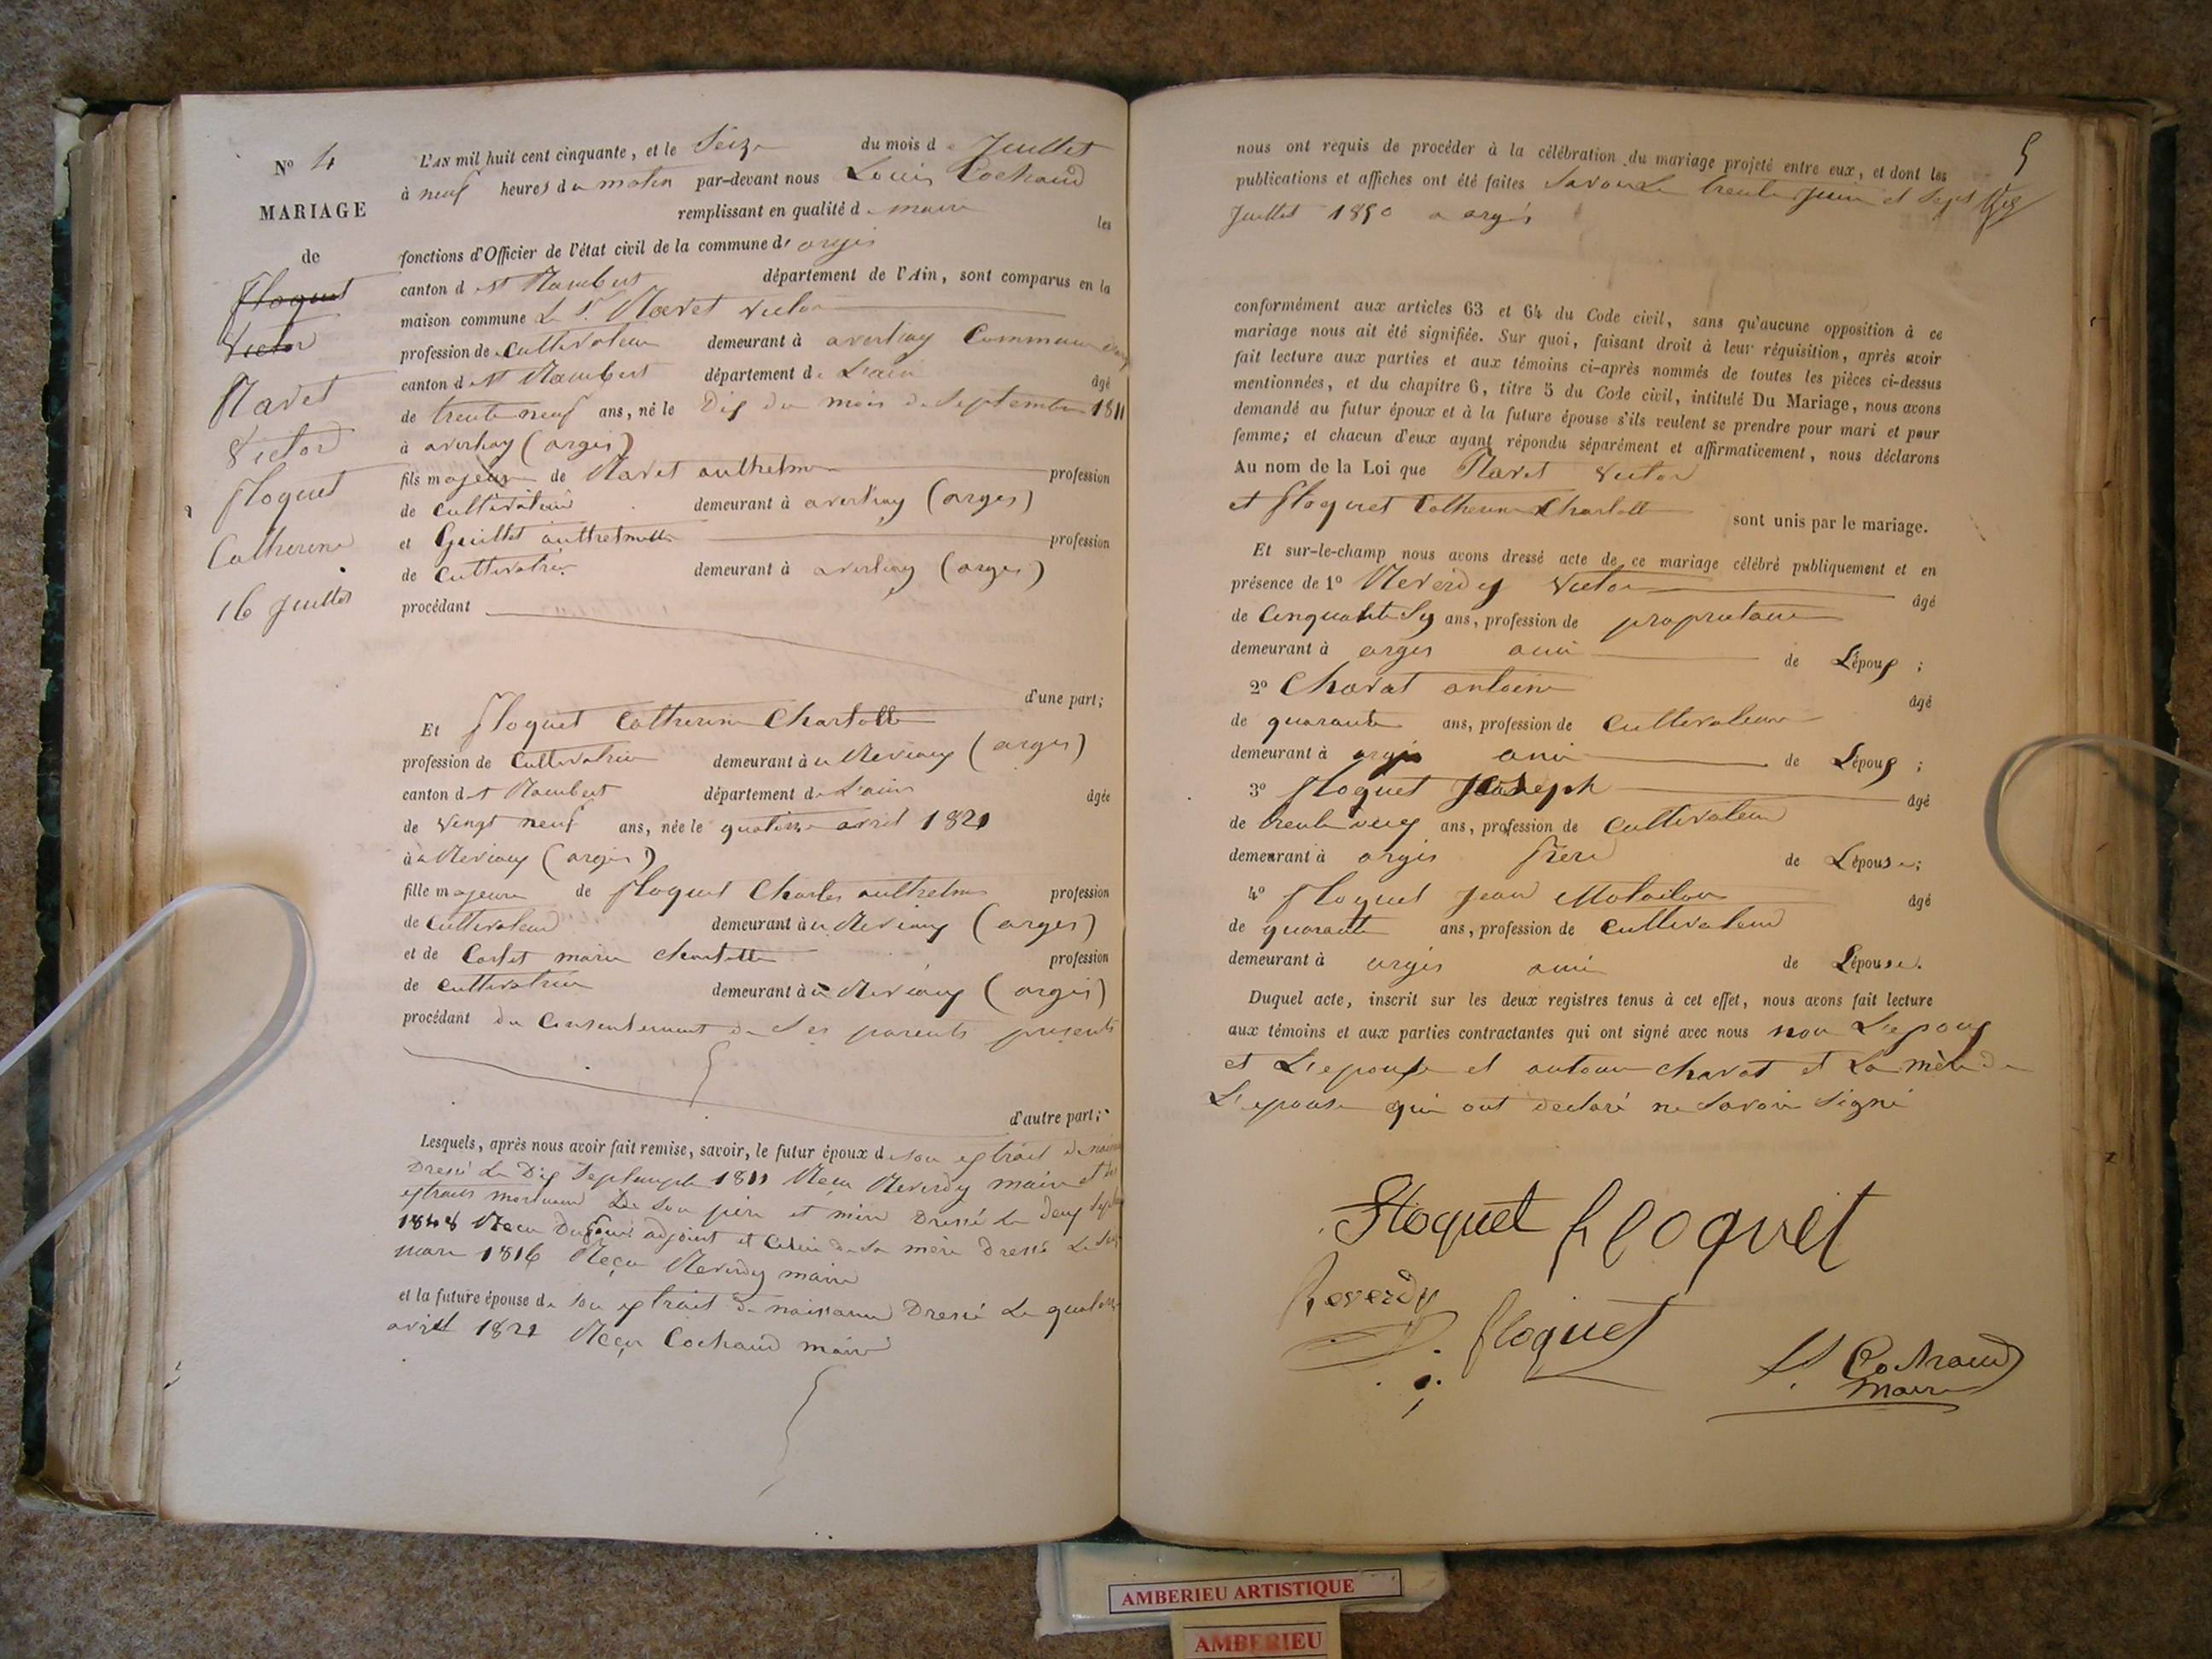 N° 4
MARIAGE
de
Floquet
Victor
Ravet
Victor
Floquet
Catherine
16 Juillet
L'AN mil huit cent cinquante, et le Seize du mois de Juillet
à neuf heures du matin par-devant nous Louis Cochaud
remplissant en qualité de maire les
fonctions d'Officier de l'état civil de la commune d'argis
canton d st Rambert département de l'Ain, sont comparus en la
maison commune Le S. Ravet victor
profession de Cultivateur demeurant à averliay Commune
canton d st Rambert département de L'ain âgé
de trente neuf ans, né le Dix du mois de Septembre 1811
à averliay (argis)
fils majeur de Ravet anthelme profession
de cultivateur demeurant à averliay (argis)
et Guillet anthelmette profession
de Cultivatrice demeurant à averliay (argis)
procédant
d'une part;
Et Floquet Catherine Charlotte
profession de Cultivatrice demeurant à a Reviaux (argis)
canton d st Rambert département de L'ain âgée
de vingt neuf ans, née le quatorze avril 1821
à a Reviaux (argis)
fille majeure de Floquet Charles anthelme profession
de Cultivateur demeurant à a Reviaux (argis)
et de Carlet marie charlotte profession
de cultivatrice demeurant à a Reviaux (argis)
procédant du consentement de Ses parents présents
d'autre part;
Lesquels, après nous avoir fait remise, savoir, le futur époux de son extrait de
Dressé Le Dix Septembre 1811 Reçu Reverdy maire et
extraits mortuaire De Son père et mère Dressé Le Deux
1848 Reçu adjoint et Celui de Sa mère Dressé Le
mars 1816 Reçu Reverdy maire
et la future épouse de son extrait de naissance Dressé Le quatorze
avril 1821 Reçu Cochaud maire
5
nous ont requis de procéder à la célébration du mariage projeté entre eux, et dont les
publications et affiches ont été faites Savoir Le trente Juin et Sept
Juillet 1850 a argis
conformément aux articles 63 et 64 du Code civil, sans qu'aucune opposition à ce
mariage nous ait été signifiée. Sur quoi, faisant droit à leur réquisition, après avoir
fait lecture aux parties et aux témoins ci-après nommés de toutes les pièces ci-dessus
mentionnées, et du chapitre 6, titre 5 du Code civil, intitulé Du Mariage, nous avons
demandé au futur époux et à la future épouse s'ils veulent se prendre pour mari et pour
femme; et chacun d'eux ayant répondu séparément et affirmativement, nous déclarons
Au nom de la Loi que Ravet Victor
et Floquet Catherine Charlotte sont unis par le mariage.
Et sur-le-champ nous avons dressé acte de ce mariage célébré publiquement et en
présence de 1° Reverdy Victor âgé
de Cinquante Six ans, profession de propriétaire
demeurant à argis ami de L'époux ;
2° Charat antoine âgé
de quarante ans, profession de Cultivateur
demeurant à argis ami de L'époux ;
3° Floquet Joseph âgé
de trente ans, profession de Cultivateur
demeurant à argis frère de L'épouse;
4° Floquet Jean âgé
de quarante ans, profession de Cultivateur
demeurant à argis ami de L'épouse.
Duquel acte, inscrit sur les deux registres tenus à cet effet, nous avons fait lecture
aux témoins et aux parties contractantes qui ont signé avec nous non L'epoux
et L'epouse et antoine charat et La mère de
L'epouse qui ont declaré ne Savoir Signé
Floquet floquet
Reverdy
floquet
L. Cochaud
maire
AMBERIEU ARTISTIQUE
AMBERIEU